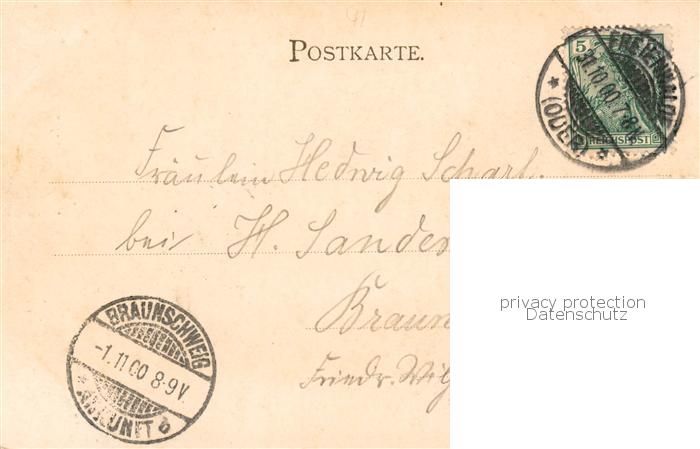 POSTKARTE.
5
FREIENWALDE
31.10.00.7-8N.
* (ODER) *
REICHSPOST
Fräulein Hedwig Scharf.
bei H. Sander
Braun
Friedr. Wilh
BRAUNSCHWEIG
-1.11.00 8-9V.
* ANKUNFT b
privacy protection
Datenschutz